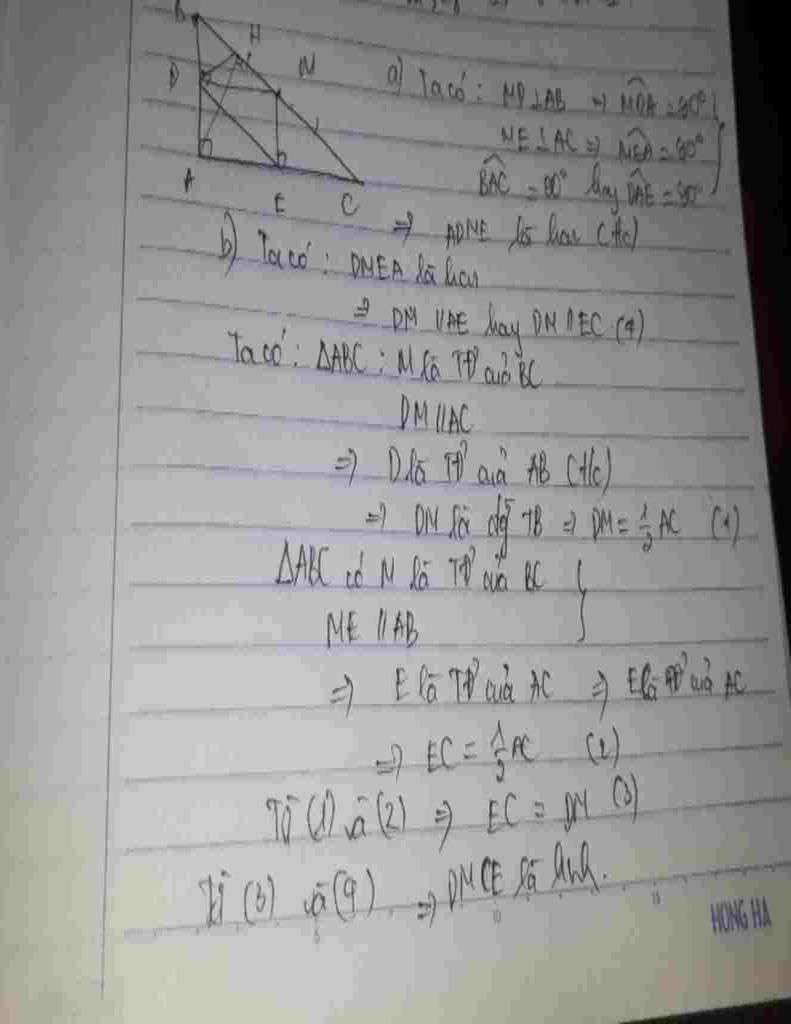 B
H
D
M
A
E
C
a) Ta có: MD ⊥ AB ⇒ MDA = 90°
ME ⊥ AC ⇒ MEA = 90°
BAC = 90° hay DAE = 90°
⇒ ADME là hcn (t/c)
b) Ta có: DMEA là hcn
⇒ DM // AE hay DM // EC (4)
Ta có: ΔABC: M là TĐ của BC
DM // AC
⇒ D là TĐ của AB (t/c)
⇒ DM là đg TB ⇒ DM = 1/2 AC (1)
ΔABC có M là TĐ của BC }
ME // AB
⇒ E là TĐ của AC ⇒ E là TĐ của AC
⇒ EC = 1/2 AC (2)
Từ (1) và (2) ⇒ EC = DM (3)
Từ (3) và (4) ⇒ DMCE là hbh.
5 10 15
HONG HA